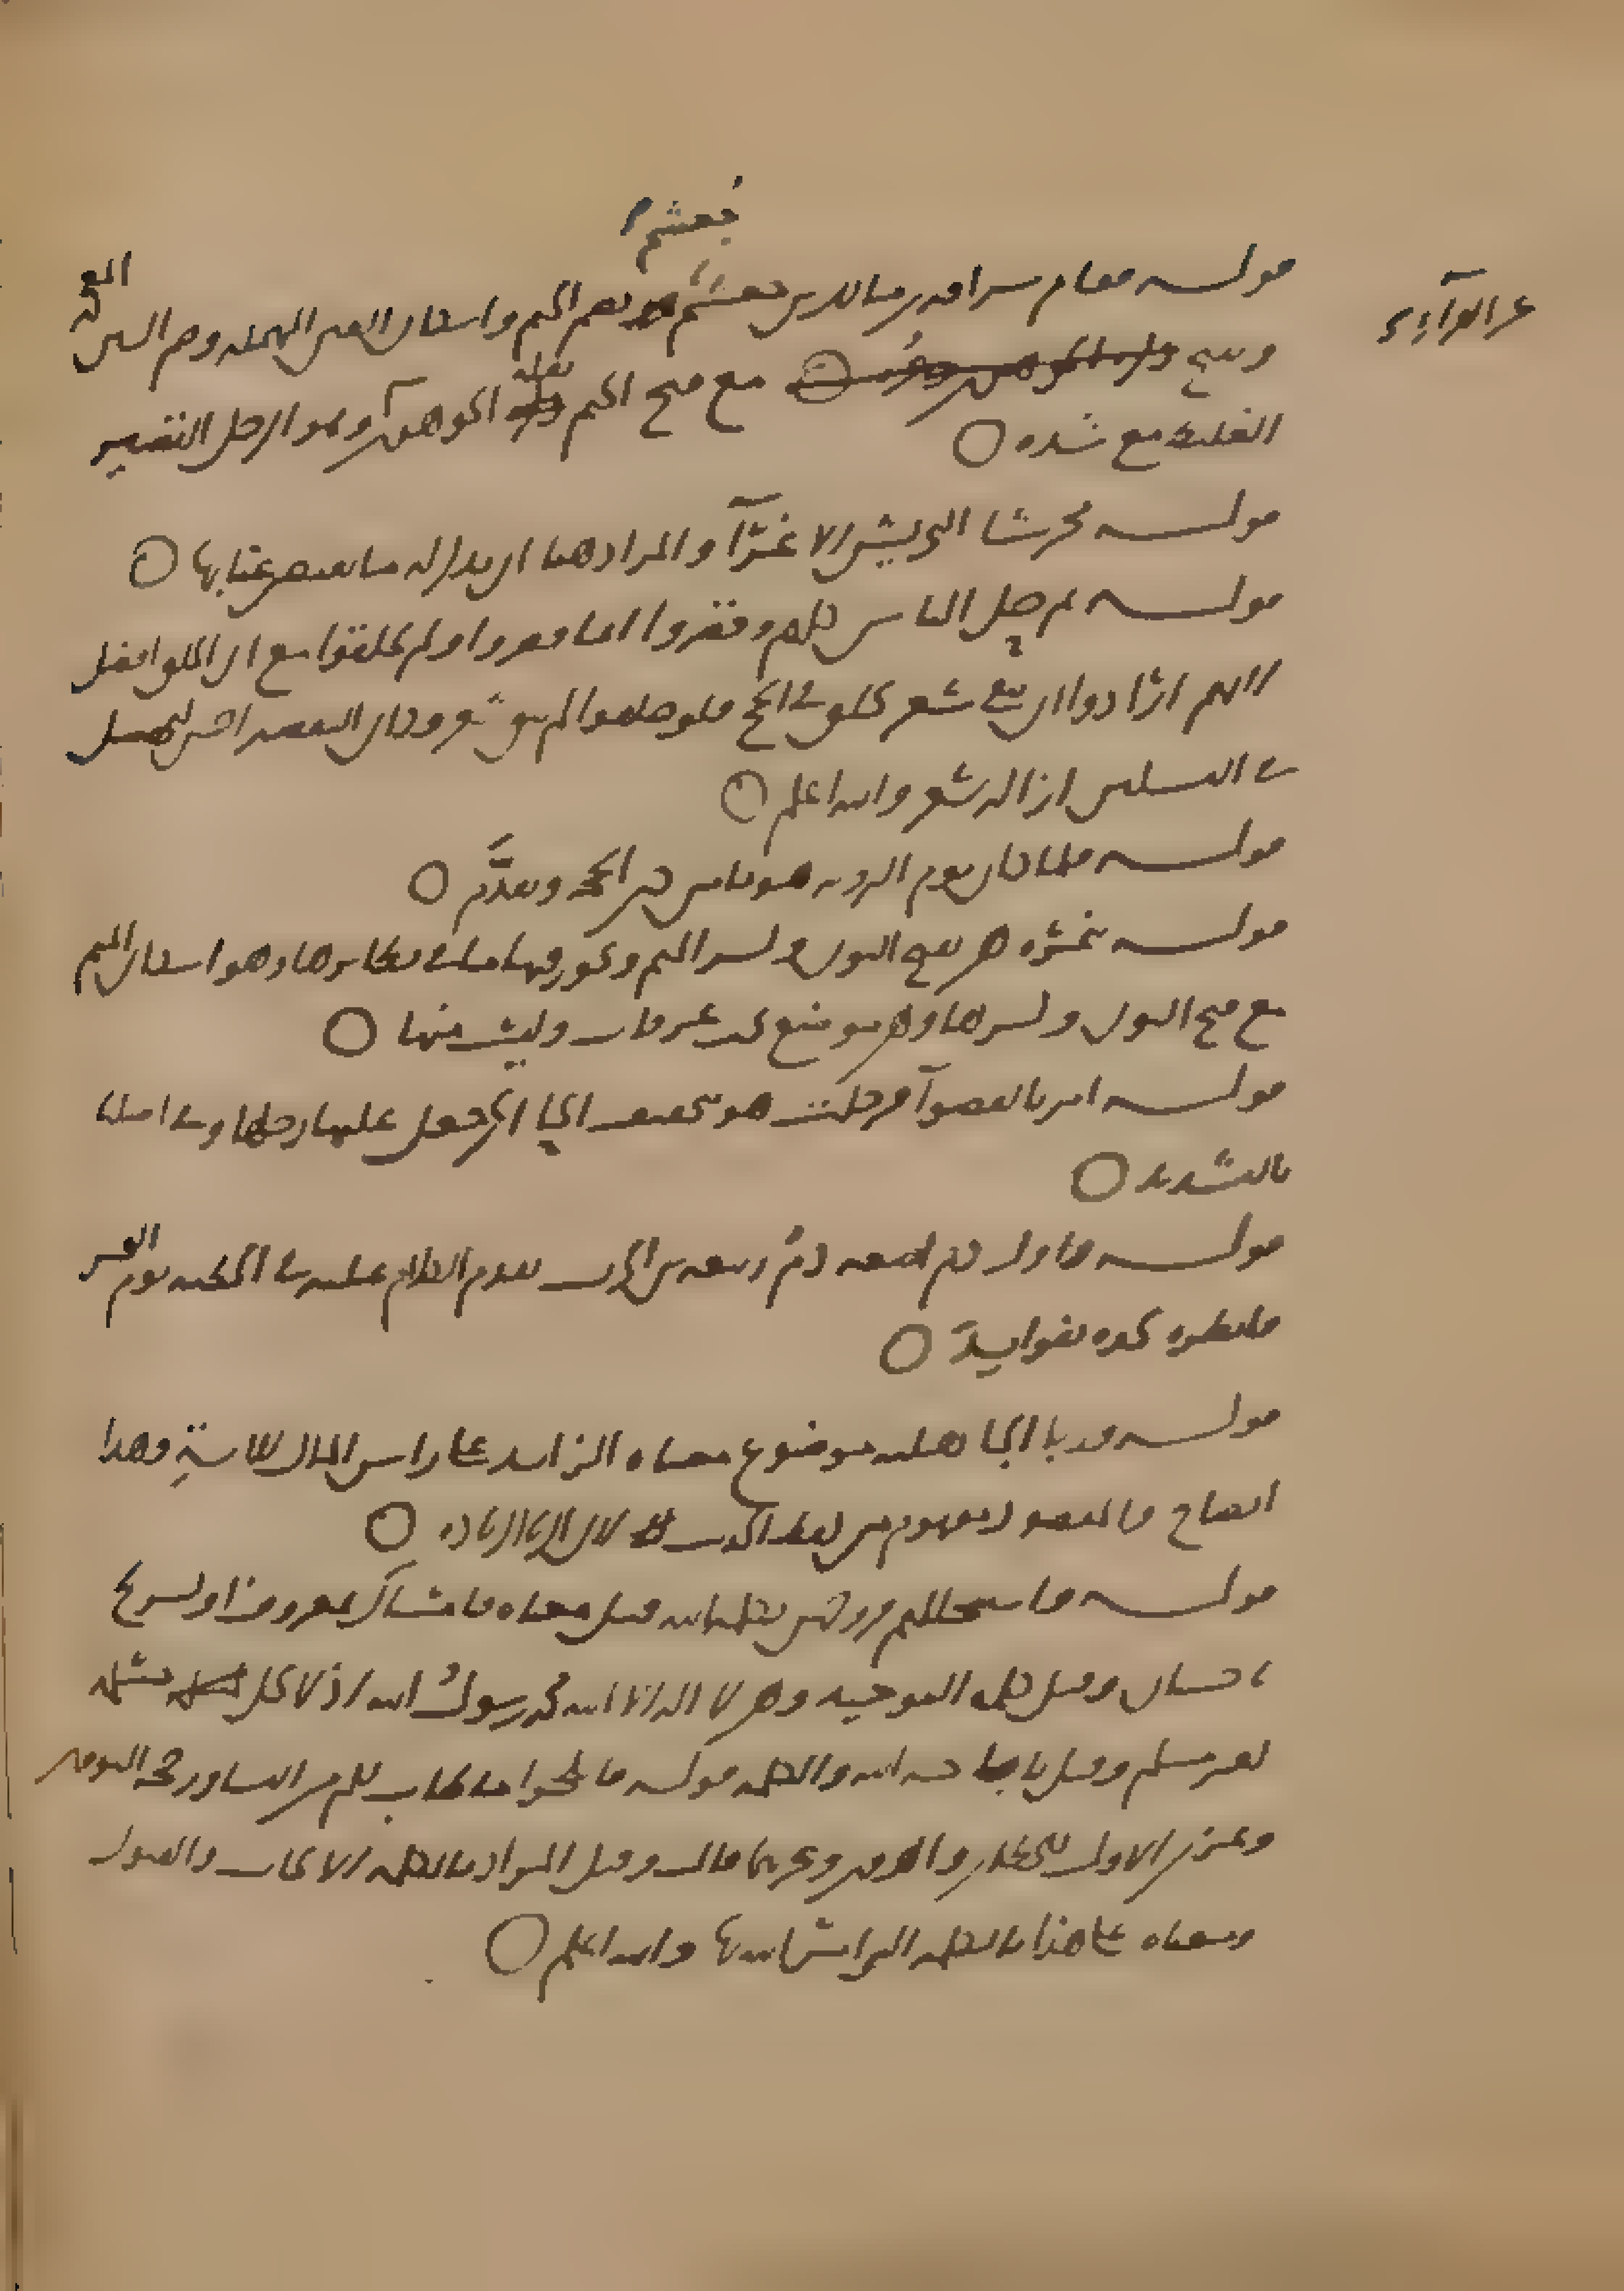 جعشم
قوله فقام سراقة بن مالك بن جعشم هو بضم الجيم واسكان العين المهملة وضم الشين المعجمة
عن الفراء
وفتح مع فتح الجيم نقله الجوهري وهو الرجل القصير
الغليظ مع شدة ○
قوله محرشا التحريش الاغراء والمراد هنا ان يذكر له ما يقتضي عتابها ○
قوله ثم حل الناس كلهم وقصروا انما قصروا ولم يحلقوا مع ان الحلق افضل
لانهم ارادوا ان يبقى شعر يحلق في الحج فلو حلقوا لم يبق شعر وكان التقصير احسن ليحصل
في النسكين ازالة شعر والله اعلم ○
قوله فلما كان يوم التروية هو ثامن ذي الحجة وتقدم ○
قوله بنمرة هي بفتح النون وكسر الميم ويجوز فيها ما في نظايرها وهو اسكان الميم
مع فتح النون وكسرها وهي موضع بجنب عرفات وليست منها ○
قوله امر بالقصواء فرحلت هو بتخفيف الحاء اي جعل عليها رحلها وفي اصلنا
بالتشديد ○
قوله واول دم اضعه دم ربيعة بن الحارث تقدم الكلام عليه في الخطبة يوم النحر
فانظره تجده بفوايده ○
قوله وربا الجاهلية موضوع معناه الزايد على راس المال وهذا
ايضاح والمقصود مفهوم من لفظ الحديث لان الربا الزيادة ○
قوله واستحللتم فروجهن بكلمة الله قيل معناه فامساك بمعروف او تسريح
باحسان وقيل كلمة التوحيد وهي لا اله الا الله محمد رسول الله اذ لا تحل مسلمة
لغير مسلم وقيل باباحة الله والكلمة قوله فانكحوا ما طاب لكم من النساء ورجحه النووي
وعزى الاول للخطابي والهروي وغيرهما قال وقيل المراد بالكلمة الايجاب والقبول
ومعناه على هذا بالكلمة التي امر الله بها والله اعلم ○